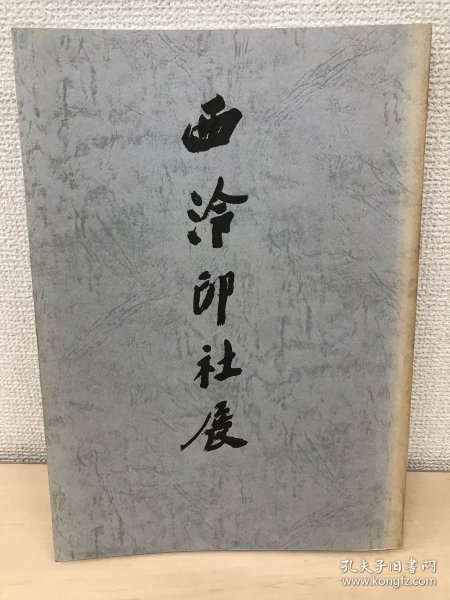 西泠印社展
孔夫子旧书网
www.kongfz.com